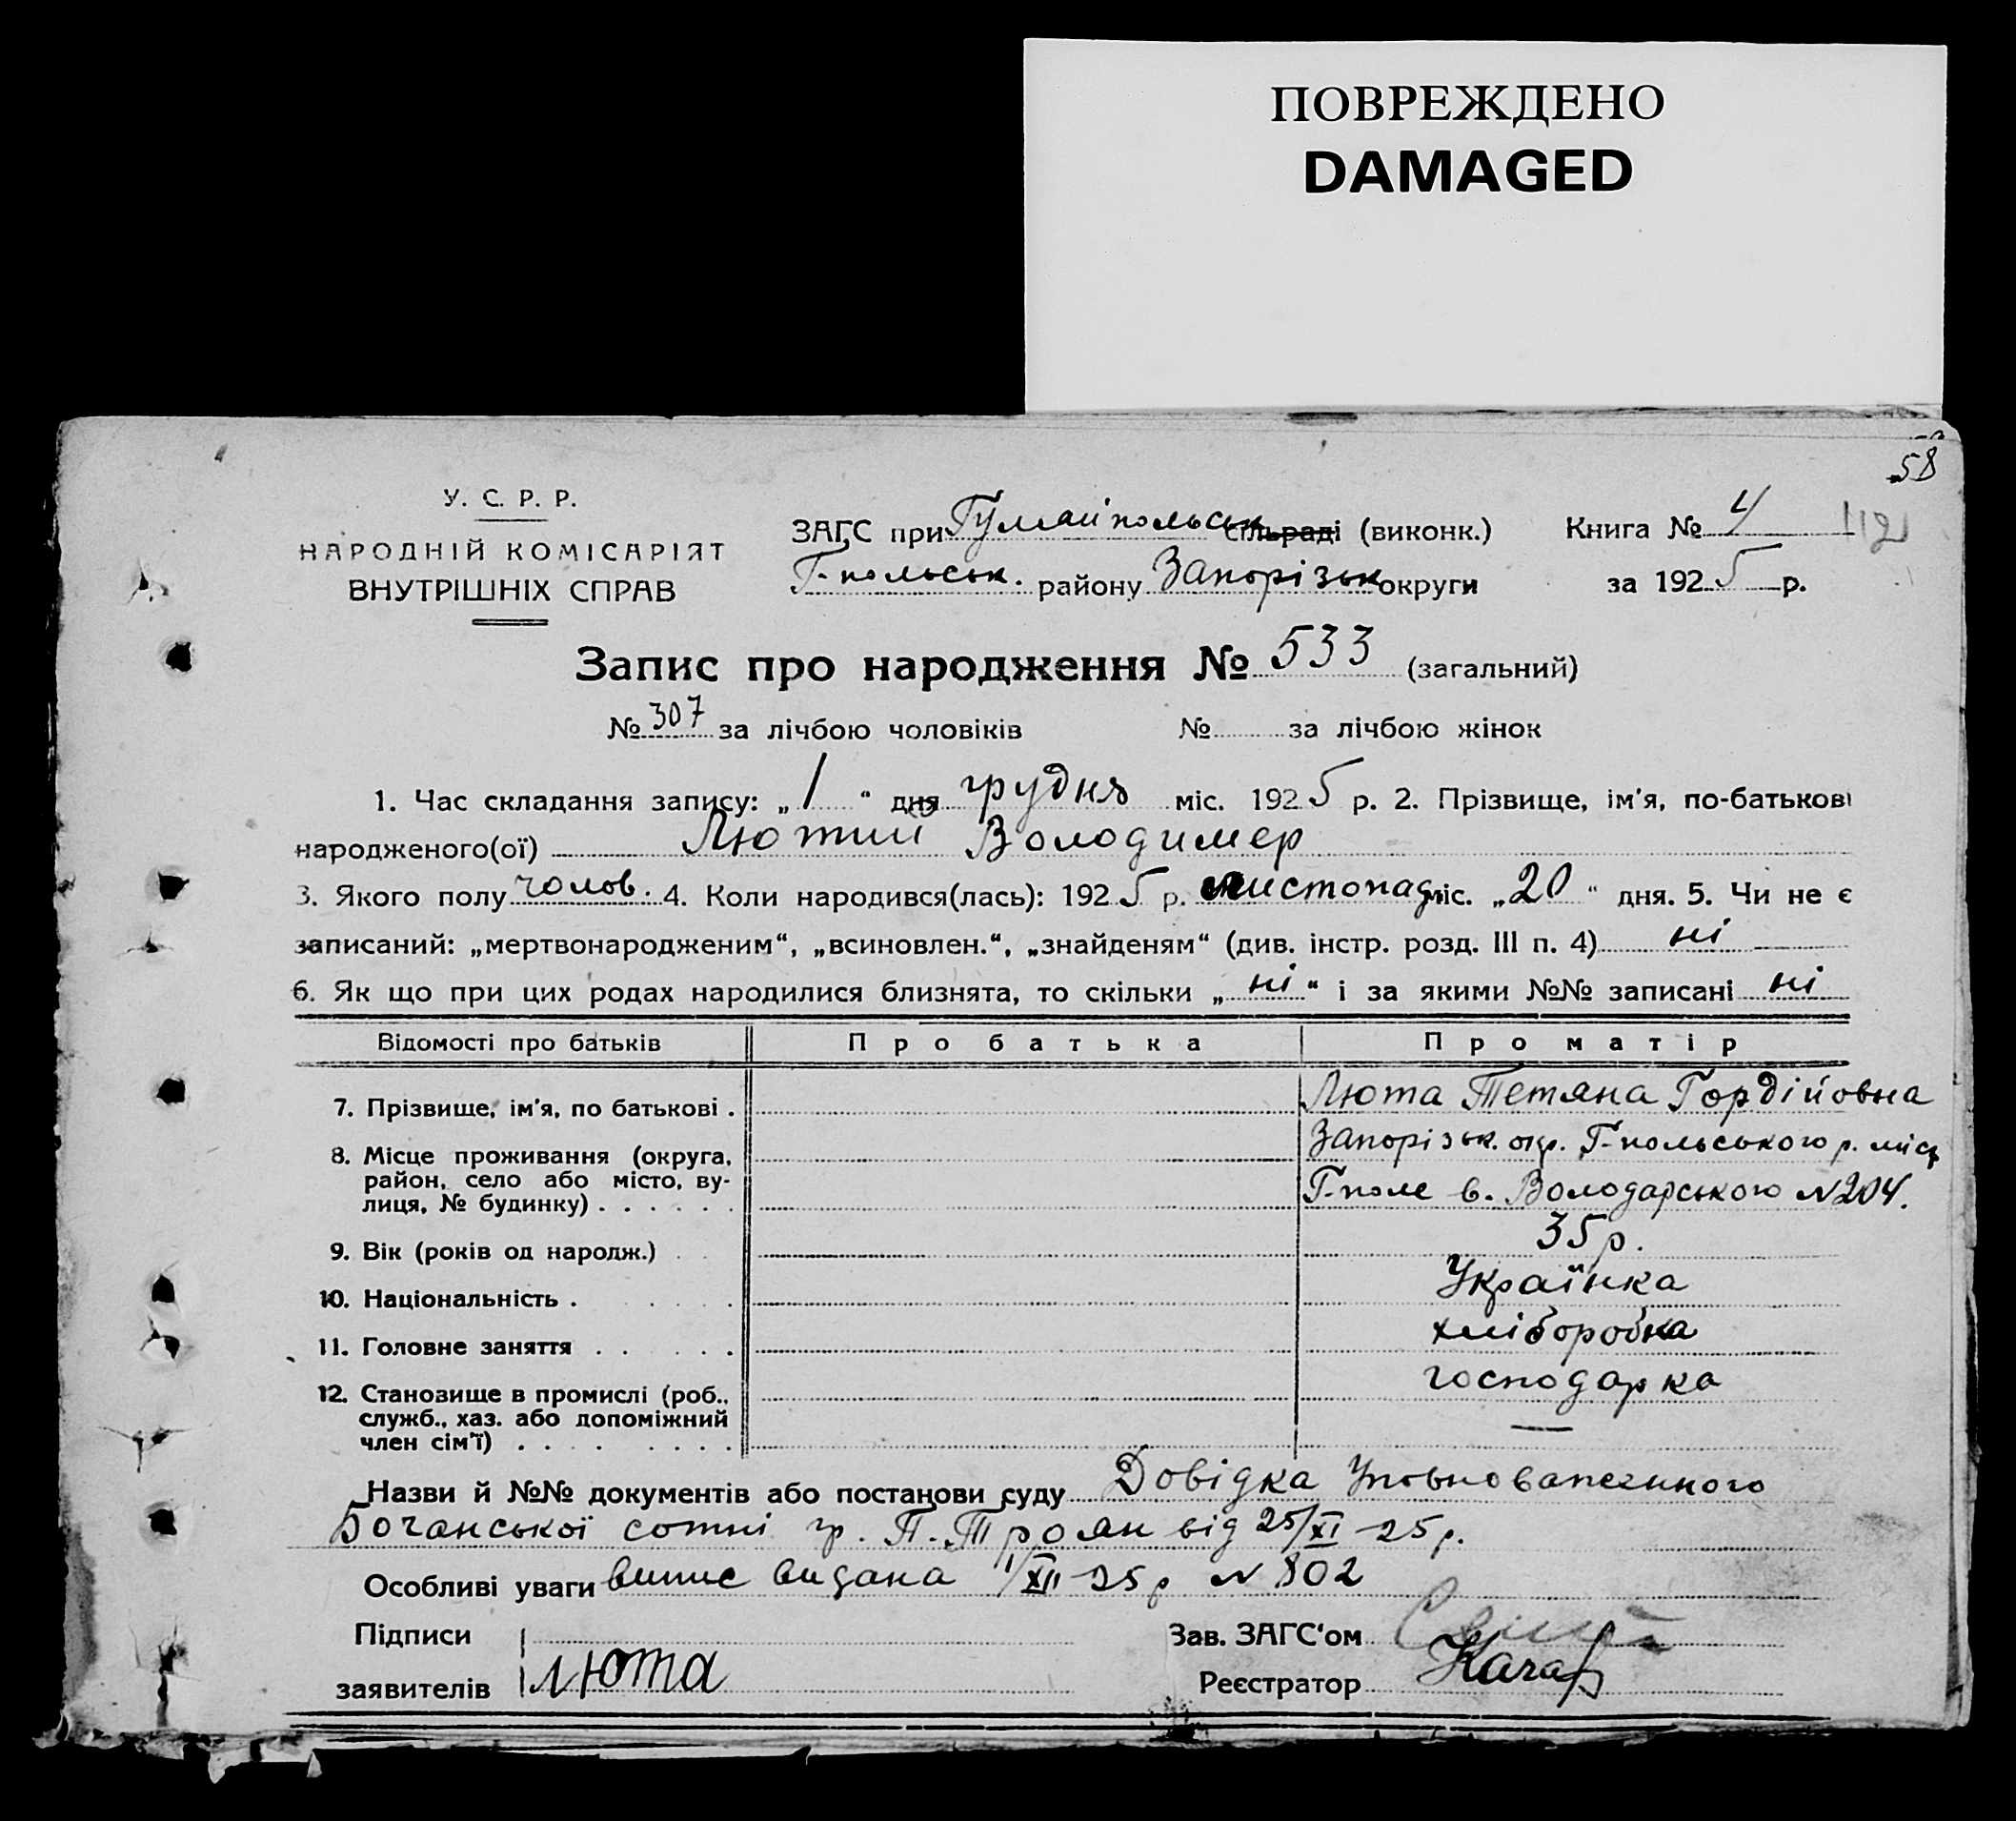 ПОВРЕЖДЕНО
DAMAGED
58
У. С. Р. Р.
НАРОДНІЙ КОМІСАРІЯТ
ВНУТРІШНІХ СПРАВ
ЗАГС при Гуляйпольськ сільраді (виконк.) Книга № 4 112
Г-польськ. району Запорізьк округи за 1925 р.
Запис про народження № 533 (загальний)
№ 307 за лічбою чоловіків № за лічбою жінок
1. Час складання запису: „1“ дня грудня міс. 1925 р. 2. Прізвище, ім'я, по-батькові
народженого(ої) Лютий Володимер
3. Якого полу чолов. 4. Коли народився(лась): 1925 р. листопад міс. „20“ дня. 5. Чи не є
записаний: „мертвонародженим“, „всиновлен.“, „знайденям“ (див. інстр. розд. III п. 4) ні
6. Як що при цих родах народилися близнята, то скільки „ні“ і за якими №№ записані ні
Відомості про батьків Про батька Про матір
7. Прізвище, ім'я, по батькові . Люта Тетяна Гордійовна
8. Місце проживання (округа, Запорізьк. окр. Г-польського р. міст
район, село або місто, ву-
лиця, № будинку) . . . . . . Г-поле в. Володарського №204.
9. Вік (років од народж.) . . 35 р.
10. Національність . . . . . Українка
11. Головне заняття . . . . . хліборобка
12. Становище в промислі (роб., господарка
служб., хаз. або допоміжний
член сім'ї) . . . . . . . . —
Назви й №№ документів або постанови суду Довідка Уповноваженного
Бочанської сотні гр. П. Троян від 25/XI-25 р.
Особливі уваги випис видана 1/XII-25 р № 802
Підписи Зав. ЗАГС'ом
заявителів Люта Реєстратор